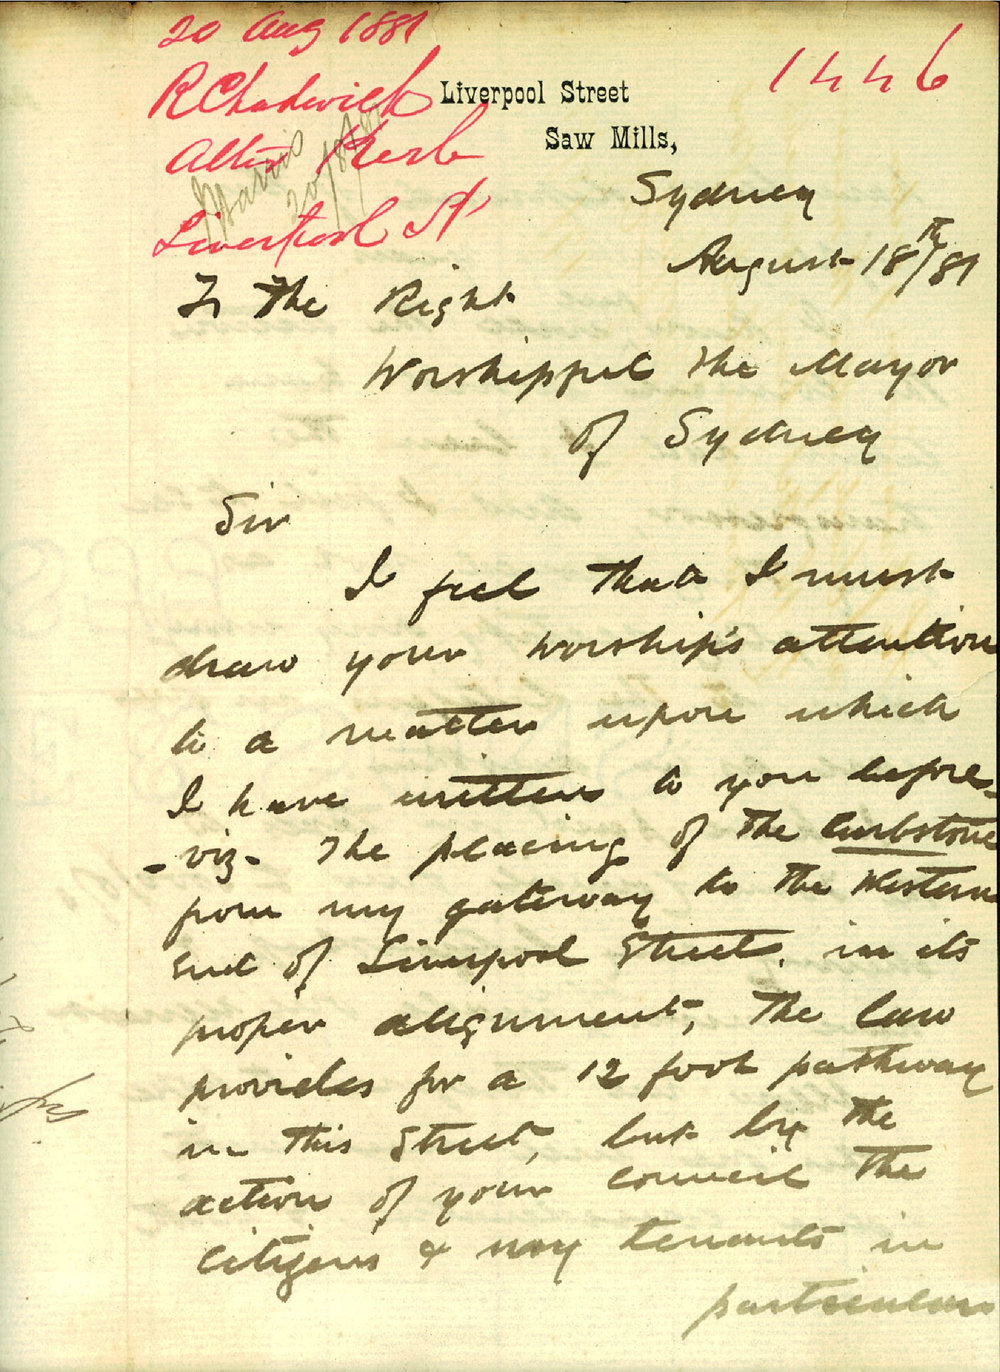 20 Aug 1881
1446
R Chadwick
Liverpool Street
Alter Kerb
Saw Mills,
Liverpool St
Sydney
August 18th/81
To the Right
Worshipful the Mayor
of Sydney
Sir
I feel that I must
draw your worship's attention
to a matter upon which
I have written to you before -
- viz - The placing of the Curbstone
from my gateway to the Western
end of Liverpool Street. in its
proper alignment, The law
provides for a 12 foot pathway
in this Street, but by the
action of your council the
citizens & my tenants in
particular